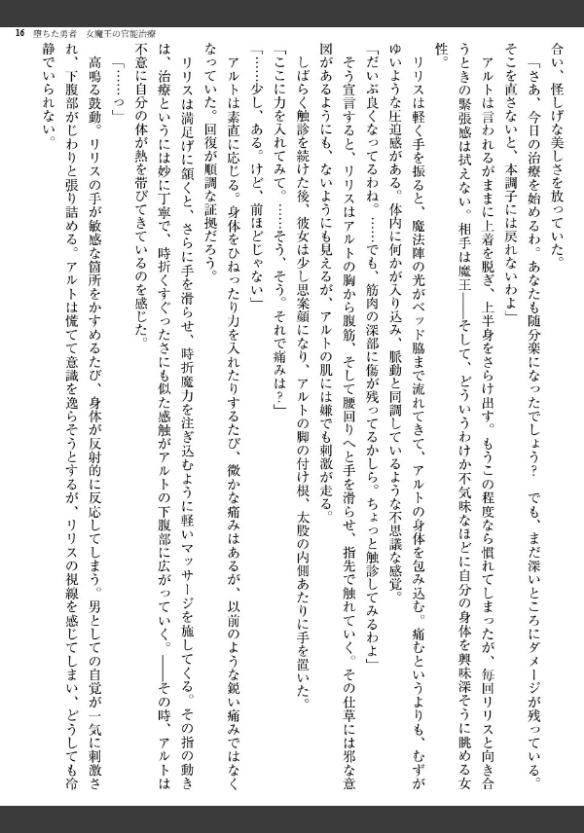 16 堕ちた勇者　女魔王の官能治療
合い、怪しげな美しさを放っていた。
「さあ、今日の治療を始めるわ。あなたも随分楽になったでしょう？　でも、まだ深いところにダメージが残っている。
そこを直さないと、本調子には戻れないわよ」
アルトは言われるがままに上着を脱ぎ、上半身をさらけ出す。もうこの程度なら慣れてしまったが、毎回リリスと向き合
うときの緊張感は拭えない。相手は魔王――そして、どういうわけか不気味なほどに自分の身体を興味深そうに眺める女
性。
リリスは軽く手を振ると、魔法陣の光がベッド脇まで流れてきて、アルトの身体を包み込む。痛むというよりも、むずが
ゆいような圧迫感がある。体内に何かが入り込み、脈動と同調しているような不思議な感覚。
「だいぶ良くなってるわね。……でも、筋肉の深部に傷が残ってるかしら。ちょっと触診してみるわよ」
そう宣言すると、リリスはアルトの胸から腹筋、そして腰回りへと手を滑らせ、指先で触れていく。その仕草には邪な意
図があるようにも、ないようにも見えるが、アルトの肌には嫌でも刺激が走る。
しばらく触診を続けた後、彼女は少し思案顔になり、アルトの脚の付け根、太股の内側あたりに手を置いた。
「ここに力を入れてみて。……そう、そう。それで痛みは？」
「……少し、ある。けど、前ほどじゃない」
アルトは素直に応じる。身体をひねったり力を入れたりするたび、微かな痛みはあるが、以前のような鋭い痛みではなく
なっていた。回復が順調な証拠だろう。
リリスは満足げに頷くと、さらに手を滑らせ、時折魔力を注ぎ込むように軽いマッサージを施してくる。その指の動き
は、治療というには妙に丁寧で、時折くすぐったさにも似た感触がアルトの下腹部に広がっていく。――その時、アルトは
不意に自分の体が熱を帯びてきているのを感じた。
「……っ」
高鳴る鼓動。リリスの手が敏感な箇所をかすめるたび、身体が反射的に反応してしまう。男としての自覚が一気に刺激さ
れ、下腹部がじわりと張り詰める。アルトは慌てて意識を逸らそうとするが、リリスの視線を感じてしまい、どうしても冷
静でいられない。